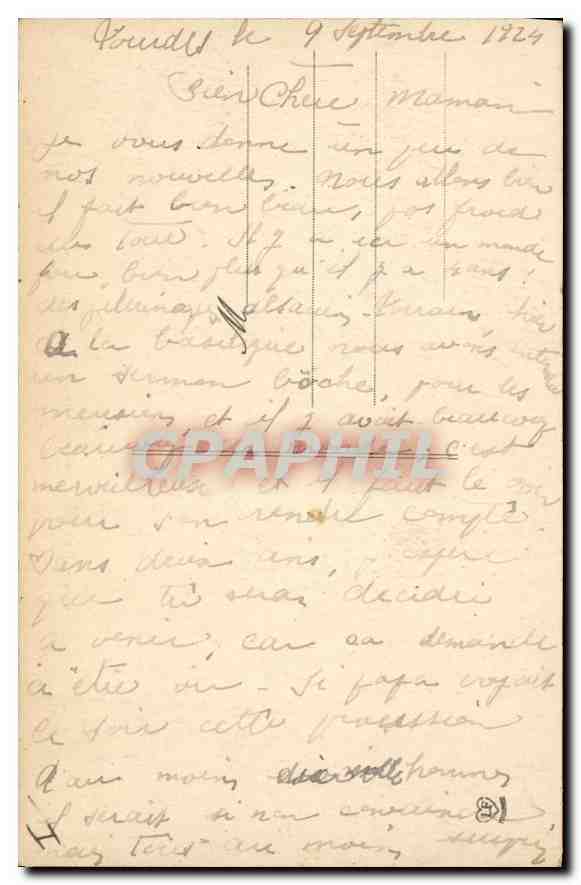 Lourdes le 9 Septembre 1924
Bien Chere Maman
je vous donne un peu de
nos nouvelles. Nous allons bien
il fait bien beau, pas froid
du tout. Il y a ici un monde
fou, bien plus qu'il y a 4 ans!
des pelerinages alsacien-lorrain, hier
a la basilique nous avons entendu
un sermon bôche, pour les
messieurs, et il y avait beaucoup
beaucoup c'est
CPAPHIL
merveilleux et il faut le voir
pour s'en rendre compte.
Dans deux ans, j'espère
que tu seras décidée
a venir, car sa demande
à être vu - Si papa voyait
le soir cette procession
d'au moins dix mille hommes
il serait si non convaincu
mais tout au moins surpris
M
LF